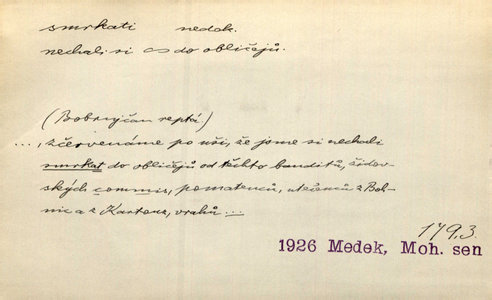 smrkati nedok.
nechali si co do obličejů.
(Bobrvyčan reptá)
..., zčervenáme po uši, že jsme si nechali
smrkat do obličejů od těchto banditů, židov-
ských commis, pomatenců, utečenců z Boh-
nic a z Kartouz, vrahů ...
179,3
1926 Medek, Moh. sen